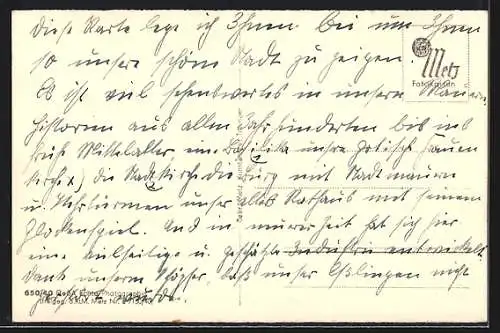 Diese Karte lege ich Ihnen bei um Ihnen
so unsere schöne Stadt zu zeigen.
Es ist viel sehenswertes in unseren Mauern,
Historien aus allen Jahrhunderten bis ins
frühe Mittelalter, eine Basilika unsere gotische Frauen
kirche, die Stadtkirche die Burg mit Stadtmauern
u. Wehrtürmen unser altes Rathaus mit seinem
Glockenspiel. Und in neuerer Zeit hat sich hier
eine vielseitige u. geschätzte Industrie entwickelt.
Dank unserem daß unser Eßlingen nicht
wurde.
Metz
650/40